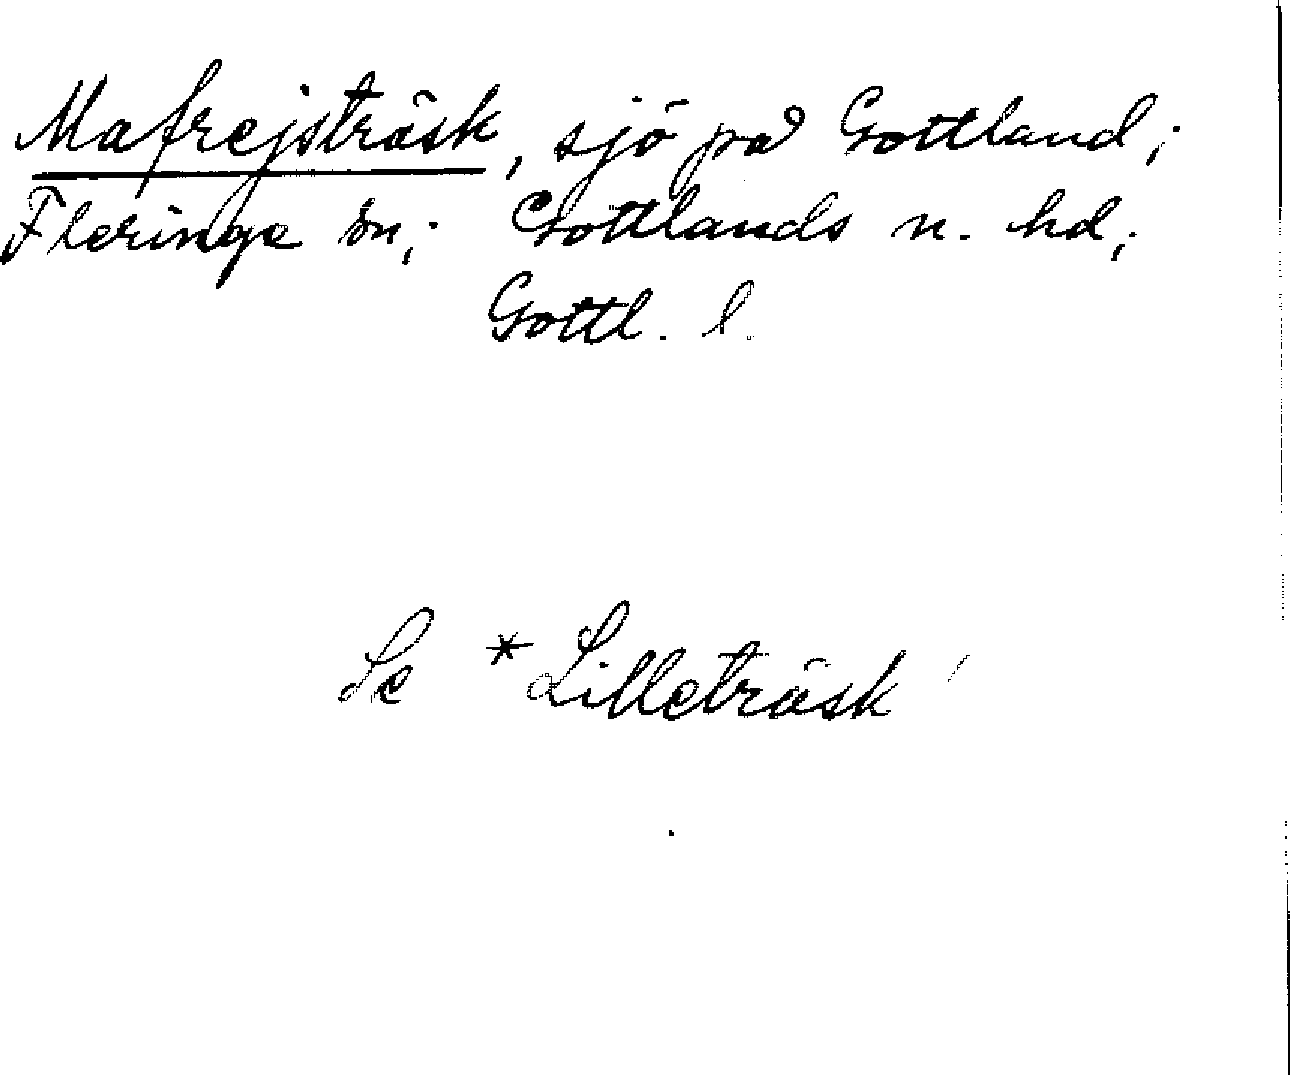 Mafrejsträsk, sjö på Gottland;
Fleringe sn; Gottlands n. hd;
Gottl. l.
Se *Lilleträsk